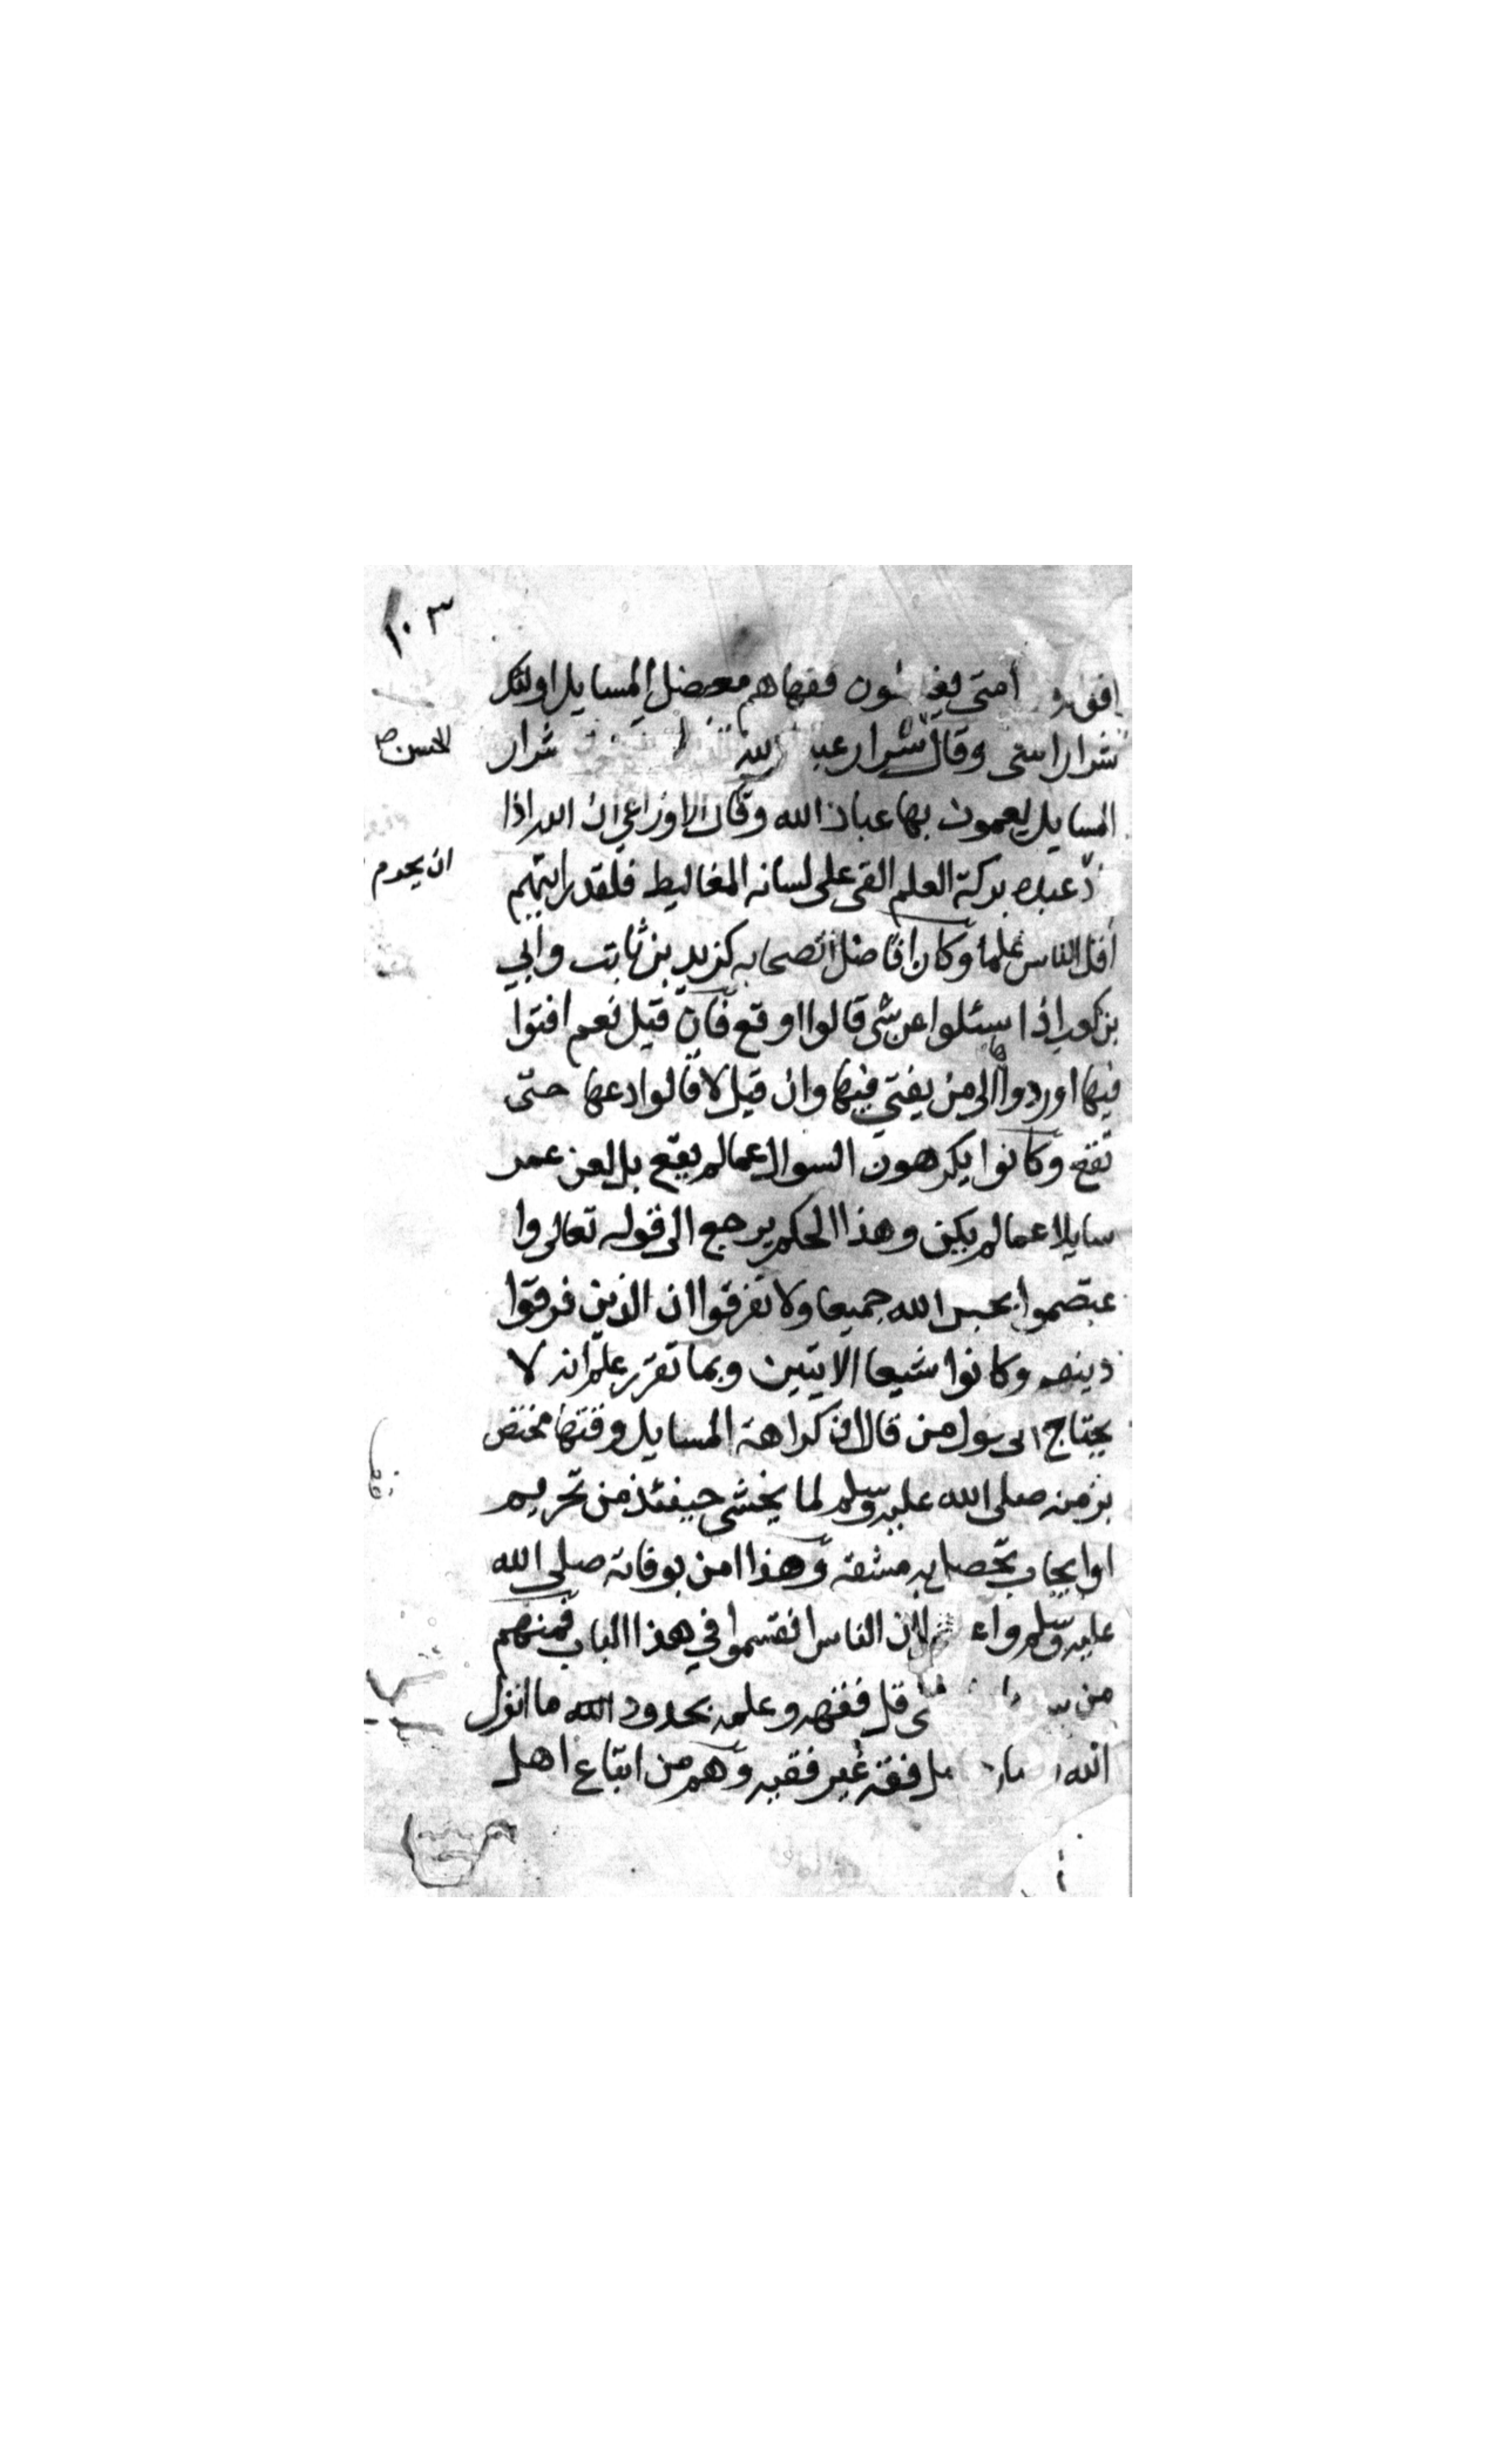 ١٠٣
امتي فقهاهم معضل المسايل اولئك
شرار امتي وقال شرار شرار
الحسن صح
المسايل يعمون بها عباد الله وقال الاوزاعي ان الله اذا
عبده بركة العلم القى على لسانه المغاليط فلقد رايتهم
ان يحرم
اقل الناس علما وكان افاضل الصحابه كزيد بن ثابت وابي
بن كعب اذا سئلوا عن شي قالوا اوقع فان قيل نعم افتوا
فيها اوردوا الى من يفتي فيها وان قيل لا قالوا دعها حتى
تقع وكانوا يكرهون السوال عمالم يقع بل لعن عمر
سايلا عمالم يكن وهذا الحكم يرجع الى قوله تعالى وا
عتصموا بحبل الله جميعا ولا تفرقوا ان الذين فرقوا
دينهم وكانوا شيعا الايتين وبما تقرر علم انه لا
يحتاج الى من قال ان كراهة المسايل مختص
بزمنه صلى الله عليه وسلم لما يخشى حينئذ من تحريم
او ايجاب تحصل به مشقه وهذا امن بوفاته صلى الله
عليه وسلم لان الناس انقسموا في هذا الباب فمنهم
من قل فقهه وعلمه بحدود الله ما انزل
الله فقه غير فقيه وهم من اتباع اهل